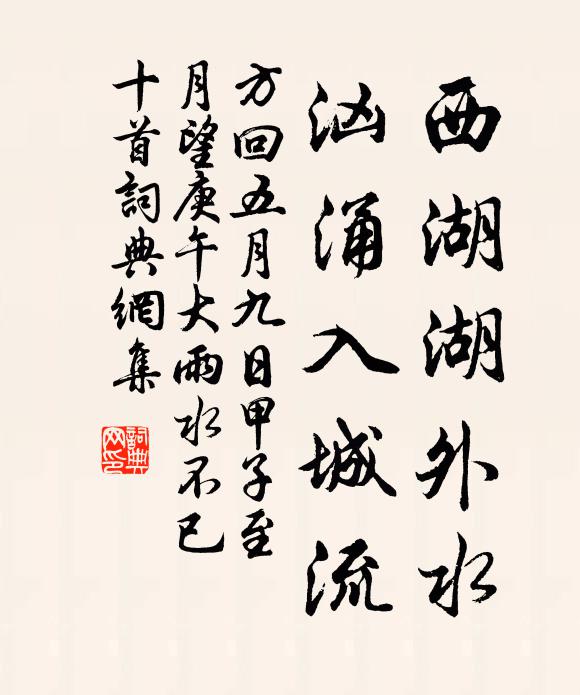 西湖湖外水
汹涌入城流
方回五月九日甲子至
月望庚午大雨水不已
十首詞典網集
詞典
网印